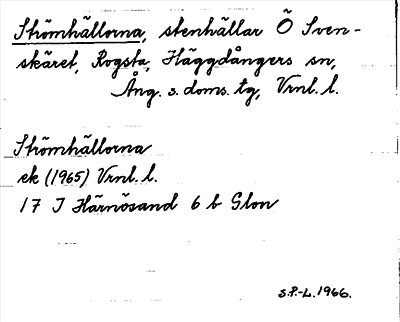 Strömhällorna, stenhällar Ö Sven-
skäret, Rogsta, Häggdångers sn,
Ång. s. doms. tg, Vrnl. l.
Strömhällorna
ek (1965) Vrnl. l.
17 J Härnösand 6 b Glon
S.P.-L. 1966.